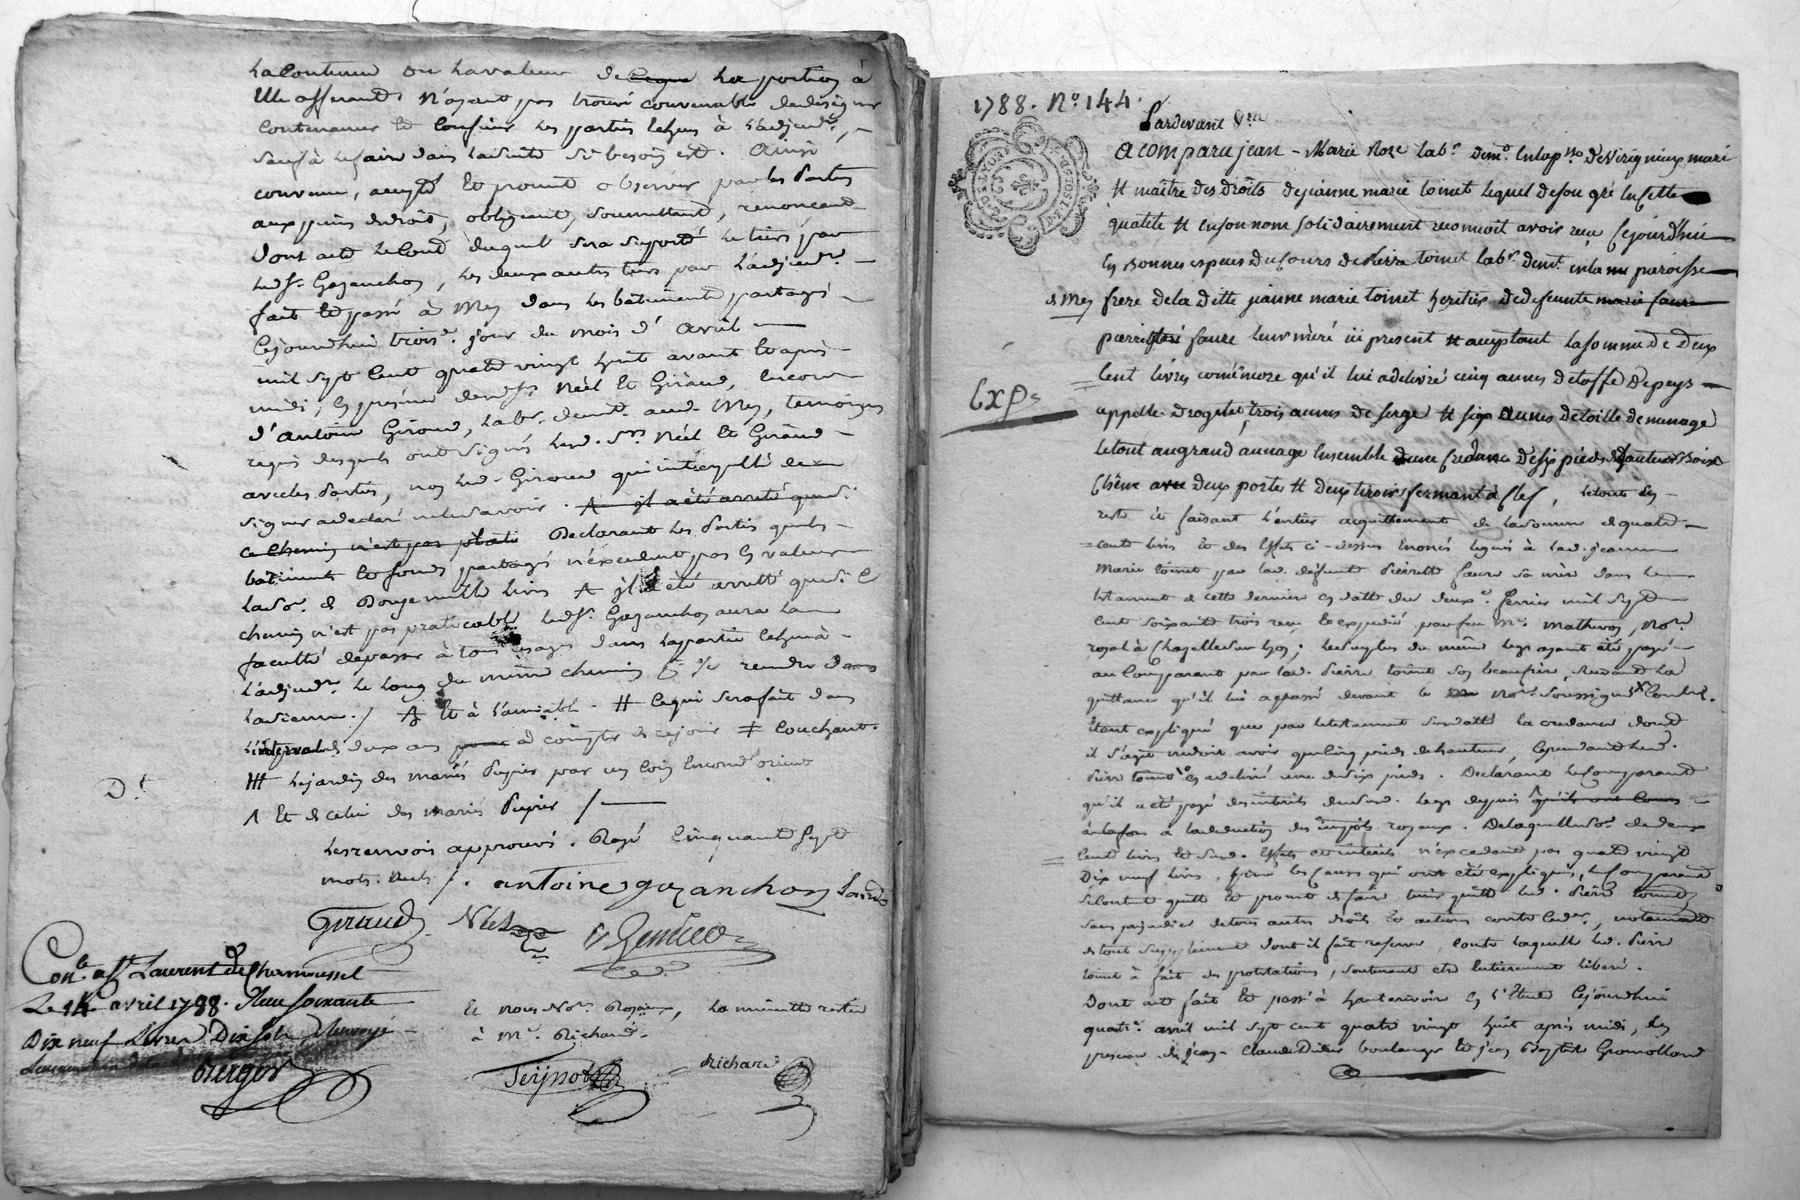 la contenue ou la valeur de la portion à
elle afferante. N'ayant pas trouvé convenable de designer
contenance et confins des parties
sauf à le faire dans la suite si besoin est. Ainsi
convenu, accepté et promit observer par les parties
aux peines de droit, obligeant, soumettant, renonçant
Dont acte le cout duquel sera suporté le tiers par
led. sr. Gazanchon, les deux autres tiers par l'adjud.re
fait et passé à Mey dans les bâtiments partagés
Cejourdhui trois.e jour du mois d'avril
mil sept cent quatre vingt huit avant et après
midi, en presence de Néel et Giraud,
d'antoine Giroud, lab.r demt. aud. Mey, temoins
requis desquels ont signés les d. srs Néel et Giraud
avec les parties, non led. Giroud qui interpellé de
signer a declaré ne le savoir. il a été arreté que si
ce chemin n'est pas Declarant les parties que les
bâtiments et fonds partagés n'excedent pas en valeur
la so.e de Douze mille livres il a été arretté que si le
chemin n'est pas praticable led. sr. Gazanchon aura la
faculté de passer à tous usages dans la partie
l'adjud.re le long du même chemin rendre dans
la sienne. / et à l'amiable # ce qui sera fait dans
l'intervale de deux ans à compter de ce jour # couchant.
# le jardin des mariés Pupier par un coin orient
Λ Et de celui des mariés Pupier /
D.t
les renvois approuvés. Rayé Cinquante sept
mots. antoine gazanchon
Giraud Néel
Con.lé à St Laurent de Chamousset
Le 14 avril 1788. Reçu soixante
Dix neuf Livres Dix sols
Berger
Et nous No.re Royaux, la minutte restée
à M.e Richard.
Teyssot Richard
1788. N.o 144.
Pardevant
a comparu jean-Marie Noze lab.r dem.t en la p.sse de Virigneux mari
et maître des droits de jeanne marie toinet lequel de son gré en cette
qualité et en son nom solidairement reconnoit avoir reçu cejourdhui
en Bonnes especes du Cours de Pierre toinet lab.r dem.t en la paroisse
de Mey frere de la ditte jeanne marie toinet heritier de defeunte marie faure
pierrette faure leur mère ici present et acceptant la somme de deux
Cent livres comme encore qu'il lui a delivré cinq aunes detoffe de peys
appellé Droguet, trois aunes de serge et six aunes de toille de menage
Exp.
le tout au grand aunage Ensemble une credance de six pieds d'auteur Bois
Chêne avec deux porte et deux tiroirs fermant à Clef, le tout en
reste et faisant l'entier acquittement de la somme de quatre
cents livres et des effets ci-dessus enoncés legués à lad. jeanne
Marie toinet par lad. defunte Pierrette faure sa mère dans le
testament de cette derniere en datte du deux.e fevrier mil sept
cent soixante trois reçu et expedié par feu M.e Mathevon, No.re
royal à Chazelle sur Lyon; le surplus du même legs ayant été payé
au Comparant par led. Pierre toinet son beaufrère, suivant la
quittance qu'il lui a passé devant le No.re soussigné
Etant expliqué que par le testament susdatté la credance dont
il s'agit ne doit avoir que cinq pieds de hauteur, cependant led.
Pierre toinet en a delivré une de six pieds. Declarant le Comparant
qu'il a été payé des interets dud. legs depuis qu'ils ont Cours
à la fois à la deduction des impots royaux. De laquelle so.e de deux
cent livres et sud. effets et interets n'excedant pas quatre vingt
Dix neuf livres, pour les causes qui ont été expliqués, le Comparant
se contente quitte et promet de faire tenir quitte led. Pierre toinet
sans prejudice de tous autres droits et actions contre led., notamment
de tout suplement dont il fait reserve Contre laquelle led. Pierre
toinet à fait des protestations, soutenant etre entierement liberé.
Dont acte fait et passé à hauterivoir en l'Etude cejourdhui
quatr.e avril mil sept cent quatre vingt huit après midi, en
presence de jean-claude Didier boulanger et jean Baptiste Gromolland